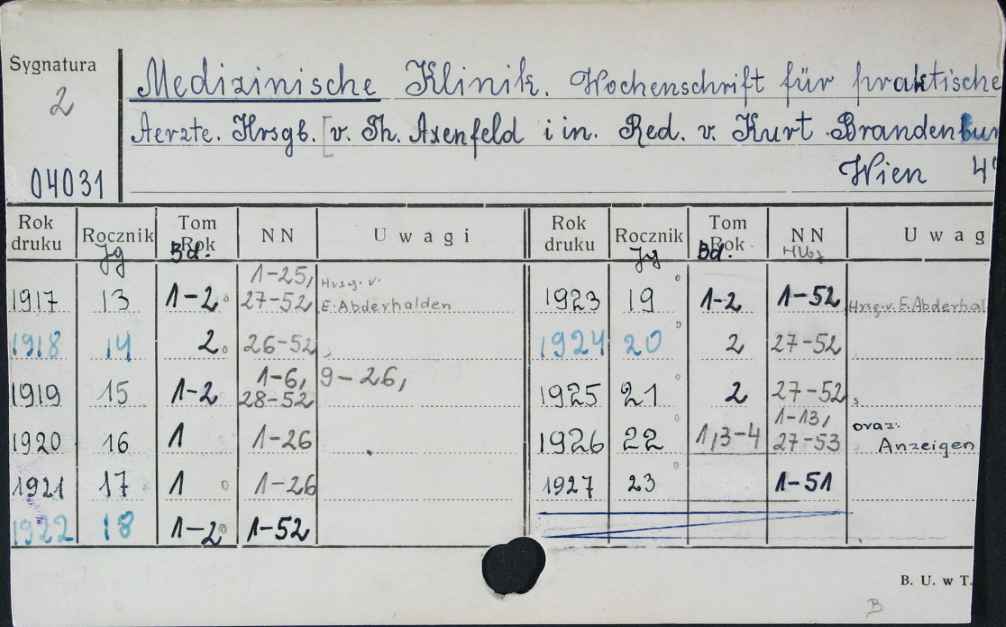 Sygnatura
2
04031
Medizinische Klinik. Wochenschrift für praktische
Aerzte. Hrsgb. [v. Th. Axenfeld i in. Red. v. Kurt Brandenbur
Wien 4°
Rok druku Rocznik Jg Tom Rok Bd. NN Uwagi
1917 13 1-2 1-25, 27-52 Hrsg. v. E. Abderhalden
1918 14 2 26-52
1919 15 1-2 1-6, 9-26, 28-52
1920 16 1 1-26
1921 17 1 1-26
1922 18 1-2 1-52
Rok druku Rocznik Jg Tom Rok Bd. NN Uwag
1923 19 1-2 1-52 Hrsg. v. E. Abderhal
1924 20 2 27-52
1925 21 2 27-52
1926 22 1,3-4 1-13, 27-53 oraz: Anzeigen
1927 23 1-51
B. U. w T.
B